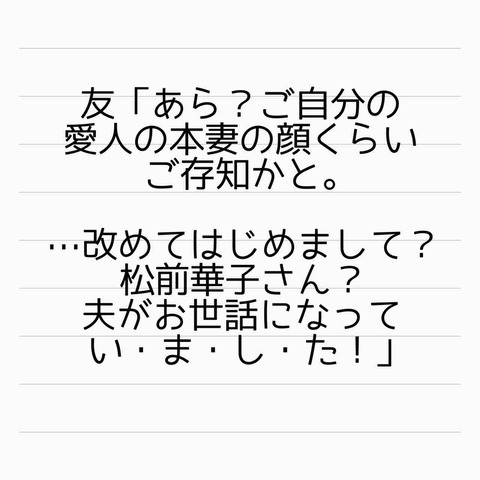 友「あら？ご自分の
愛人の本妻の顔くらい
ご存知かと。
…改めてはじめまして？
松前華子さん？
夫がお世話になって
い・ま・し・た！」